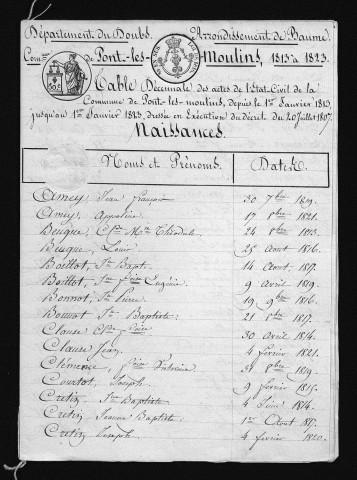 Département du Doubs. Arrondissement de Baume.
Com.ne de Pont-les-Moulins, 1813 à 1823.
Table Décennale des actes de l'Etat-Civil de la
Commune de Pont-les-moulins, depuis le 1er Janvier 1813,
jusqu'au 1er Janvier 1823, dressée en Exécution du décret du 20 Juillet 1807.
Naissances.
Noms et Prénoms. Dates.
Amey, Jean françois 30 7bre 1819.
Amey, Appoline 17 1821.
Beugue, Mie Théodule 24 1813.
Beugue, Louis 25 Aout 1816.
Boillot, Jn Bapt. 14 Aout 1817.
Boillot, Eugénie 9 avril 1819.
Bonnot, Jn Pierre 19 9bre 1816.
Bonnot Jn Baptiste 21 1817.
Clause 30 Avril 1814.
Clause Jean 4 fevrier 1821.
Clémence, 31 8bre 1819.
Courtot, Joseph 9 fevrier 1815.
Cretin, Jn Baptiste 4 1814.
Cretin Jeanne Baptiste 1er Aout
Cretin Joseph 4 fevrier 1820.